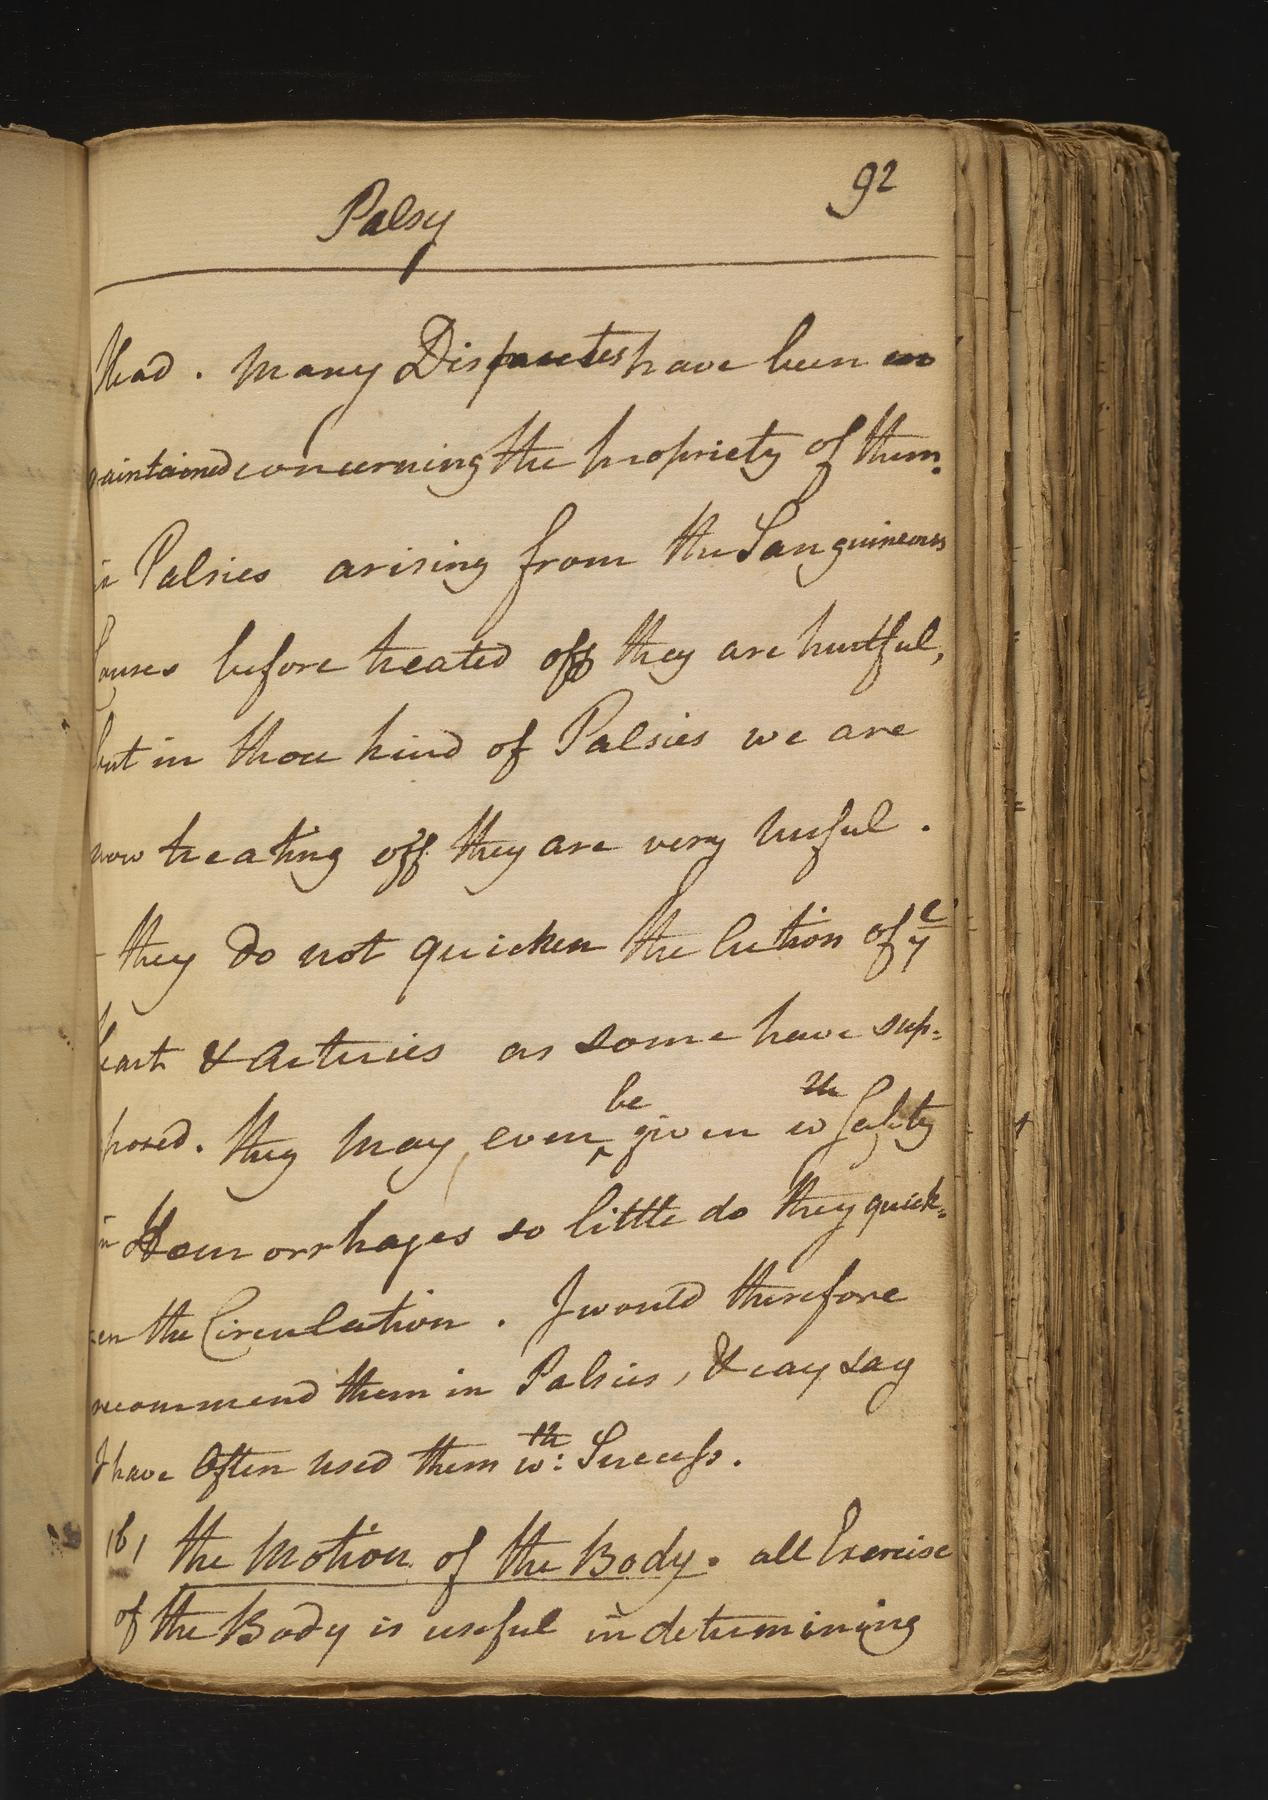 92
Palsy
Head. Many Disputes have been
maintained concerning the propriety of them.
in Palsies arising from the Sanguineous
Causes before treated off they are hurtful,
but in those kind of Palsies we are
now treating off they are very useful.
- they do not quicken the Action of ye
heart & Arteries as some have sup-
posed. they may even be given wth Safety
in Hæmorrhages so little do they quick-
-en the Circulation. I would therefore
recommend them in Palsies, & can say
I have Often used them wth: Success.
161 the Motion of the Body. all Exercise
of the Body is useful in determining